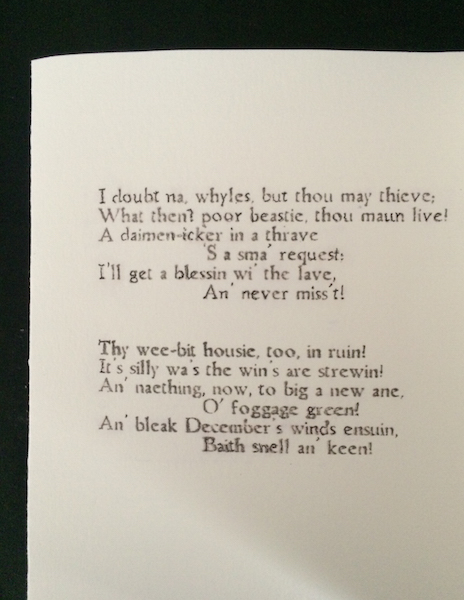 I doubt na, whyles, but thou may thieve;
What then? poor beastie, thou maun live!
A daimen-icker in a thrave
'S a sma' request:
I'll get a blessin wi' the lave,
An' never miss't!
Thy wee-bit housie, too, in ruin!
It's silly wa's the win's are strewin!
An' naething, now, to big a new ane,
O' foggage green!
An' bleak December's winds ensuin,
Baith snell an' keen!